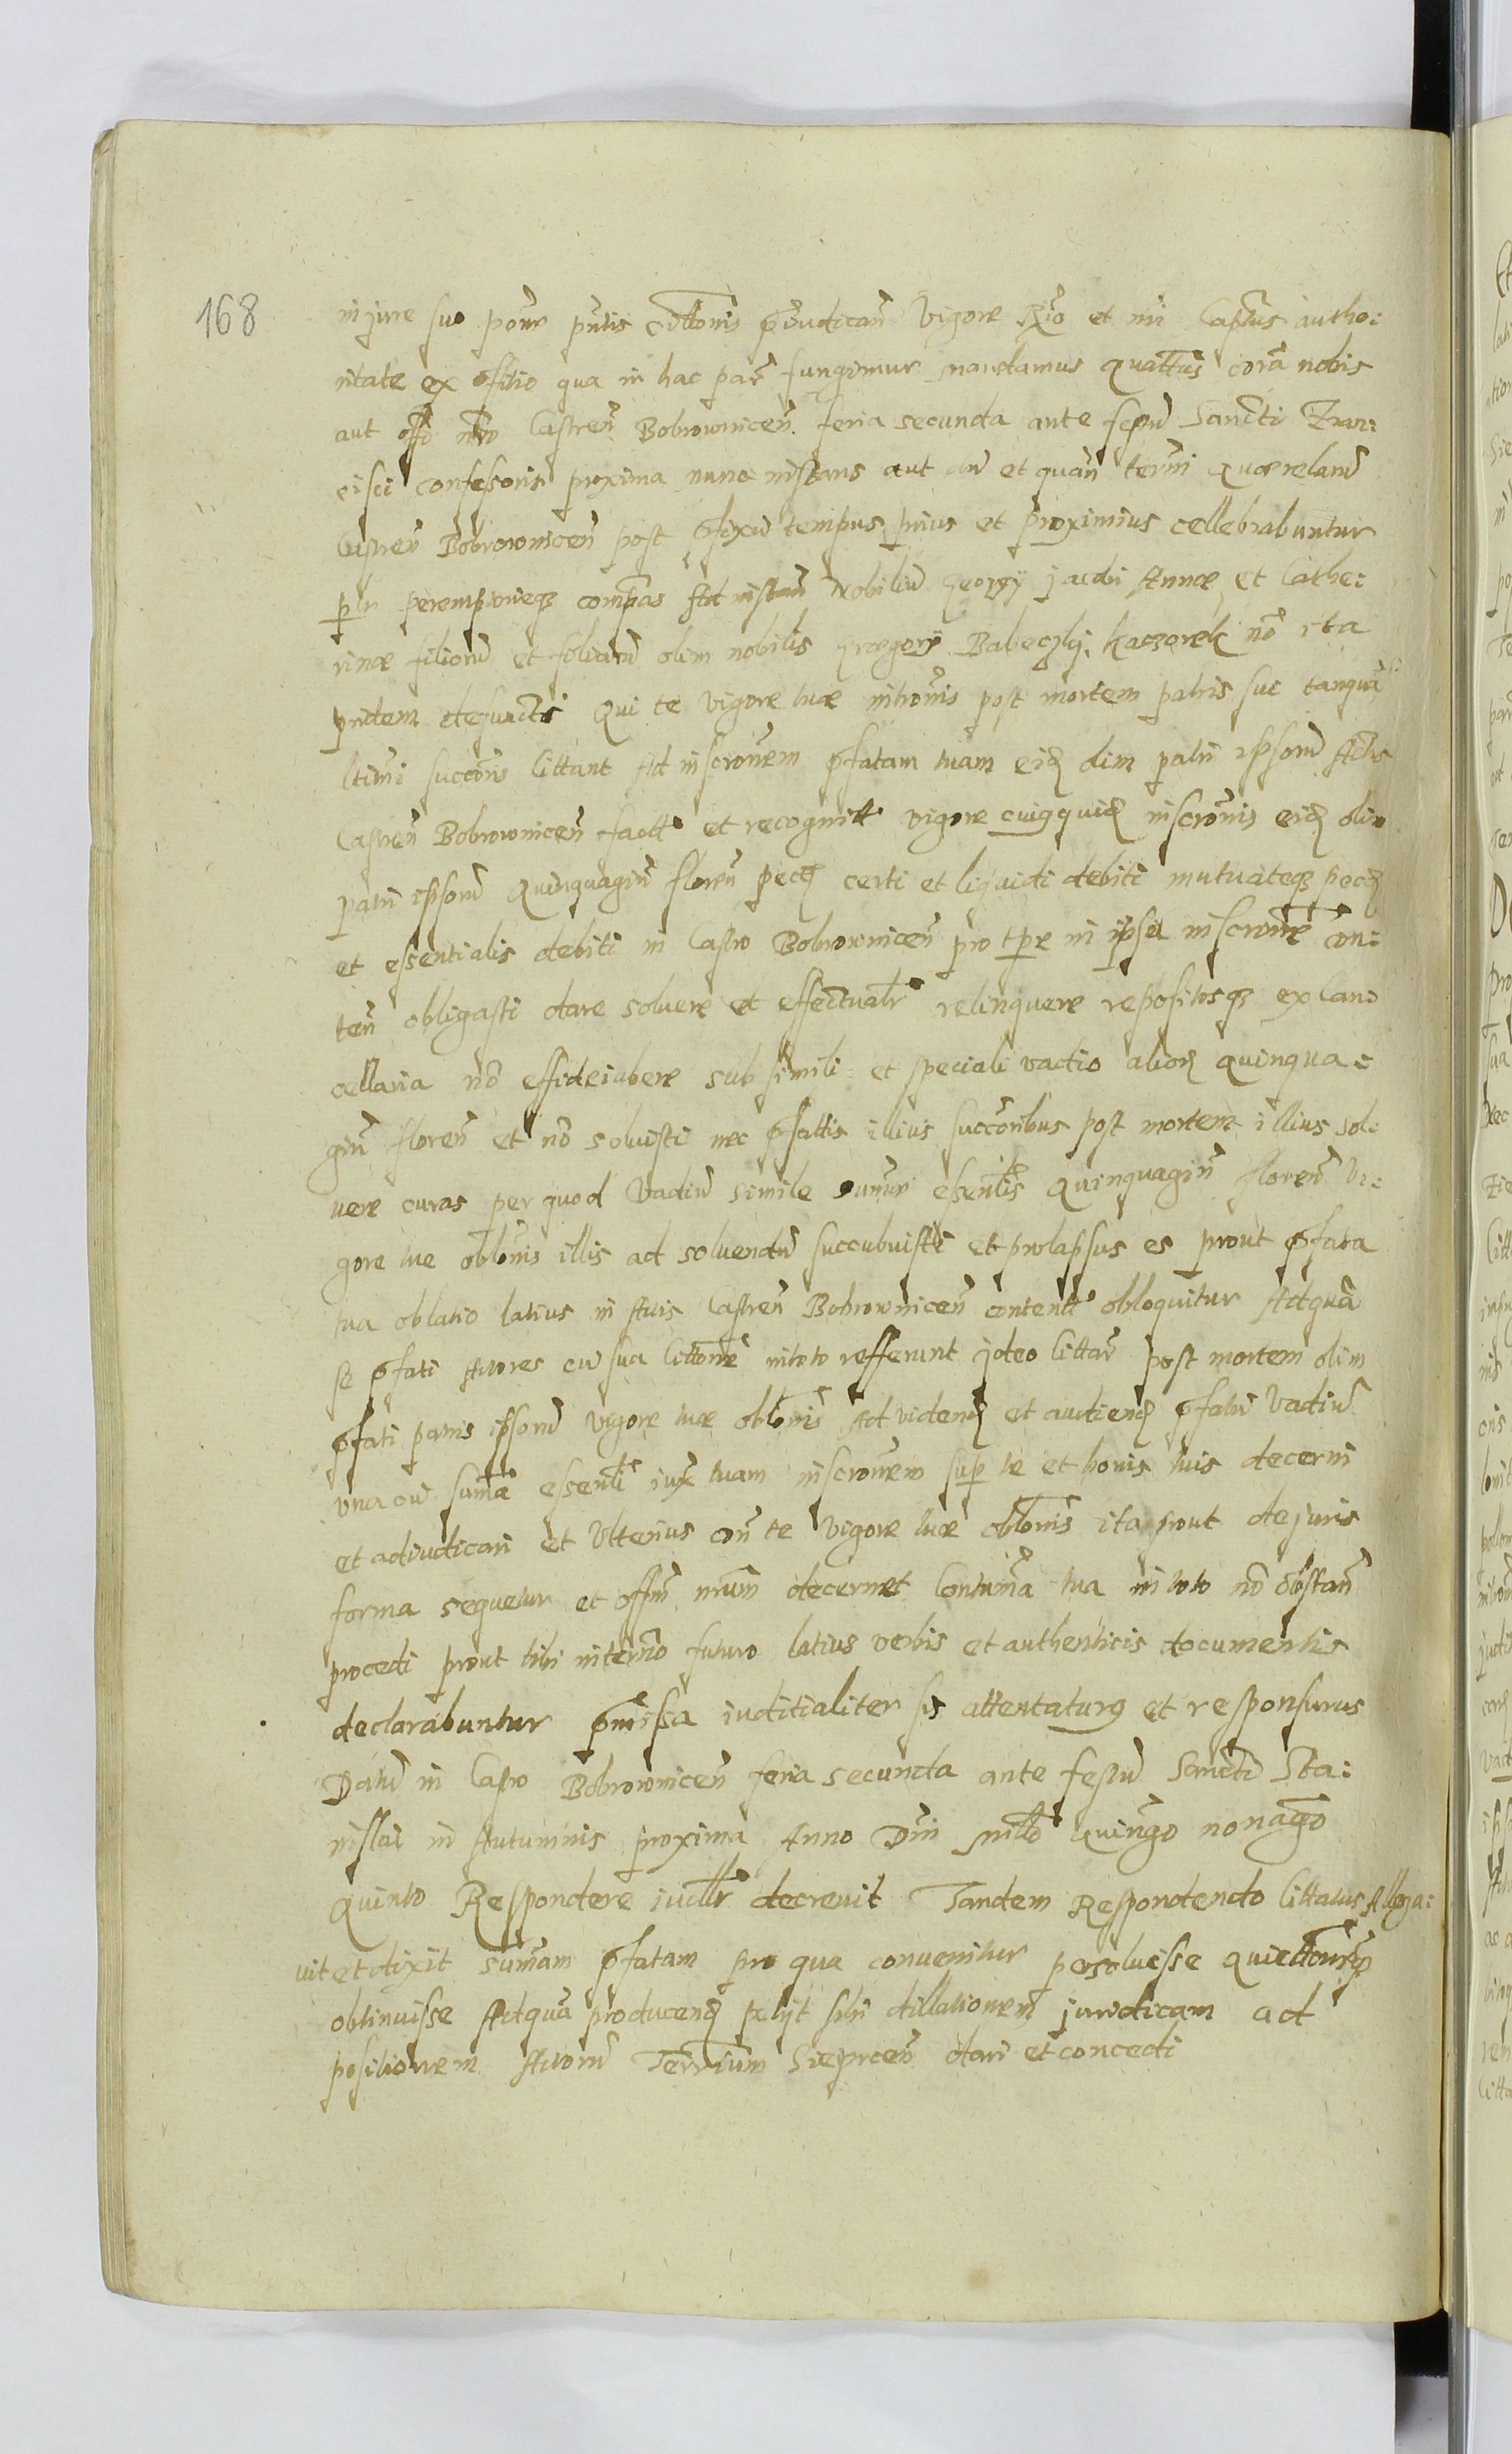 168
in jure suo ponr pntis Cittonis pjudicań vigore Rgio et nri Captus autho:
ritate ex offitio qua in hac par fungimur mandamus Quattus corā nobis
aut offo nro Castreń Bobrowniceń feria secunda ante festū Sancti Fran:
cisci confessoris proxima nunc instans aut dū et quań termi quærelarū
Castreń Bobrowniceń post pfixū tempus prius et proximius cellebrabuntur
psr peremptorieqз compas Ad instań Nobiliū Georgÿ jacobi Annæ et Cathe:
rinæ filiorū et filiarū olim nobilis Græegorÿ Babeczky Kaczorek nō ita
pridem defuncti Qui te vigore tuæ intronis post mortem patris sui tanquā
ltimi succoris Cittant Ad inscronem pfatam tuam eidз olim patri ipsorū Actis
Castreń Bobrowniceń factt et recognitt vigore cuiqquidз inscronis eidз olim
patri ipsorū Quinquagin floreń pecз certi et liquidi debiti mutuatæqз pecз
et essentialis debiti in Castro Bobrowniceń pro tpre in ipsa inscrone con:
teń obligasti dare soluere et effectualr relinquere repositosqз ex Can:
cellaria nō effideiubere sub simili et speciali vadio aliorз quinqua:
gin floreń et nō soluisti nec pfattis illius succoribus post mortem illius sol:
uere curas per quod vadiū simile sumæ essentlis Quinquagin floreń vi:
gore tuæ oblonis illis ad soluendū succubuisti et prolapsus es prout pfata
tua oblatio latius in Actis Castreń Bobrowniceń contentt obloquitur Ad quā
se pfati Actores cū sua Cittone in toto refferunt jdeo Cittar post mortem olim
pfati patris ipsorū vigore tuæ oblonis Ad videndз et audiendз pfatū vadiū
vna cū sumā essentli iux tuam inscronem sup te et bonis tuis decerni
et adiudicari et vlterius con te vigore tuæ oblonis ita prout de juris
forma sequetur et offm nrum decernet Contuma tua in toto nō obstań
procedi prout tibi in termo futuro latius verbis et authenticis documentis
declarabuntur pmissa iuditialiter sis attentaturq et responsurus
Datū in Castro Bobrowniceń feria secunda ante festū Sancti Sta:
nislai in Autumnis proxima Anno Dni millo quingo nonago
Quinto Respondere iudllr decreuit Tandem Respondendo Cittatus Allega:
uit et dixit sumam pfatam pro qua conuenitur persoluisse quiettonem
obtinuisse Ad quā producendз petÿt sibi dillationem juridicam ad
positionem Actorū Terrium Sieprceń dari et concedi